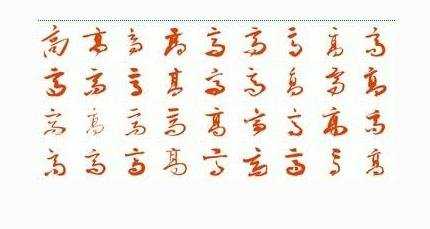 高 高 高 高 高 高 高 高 高
高 高 高 高 高 高 高 高 高
高 高 高 高 高 高 高 高 高
高 高 高 高 高 高 高 高 高